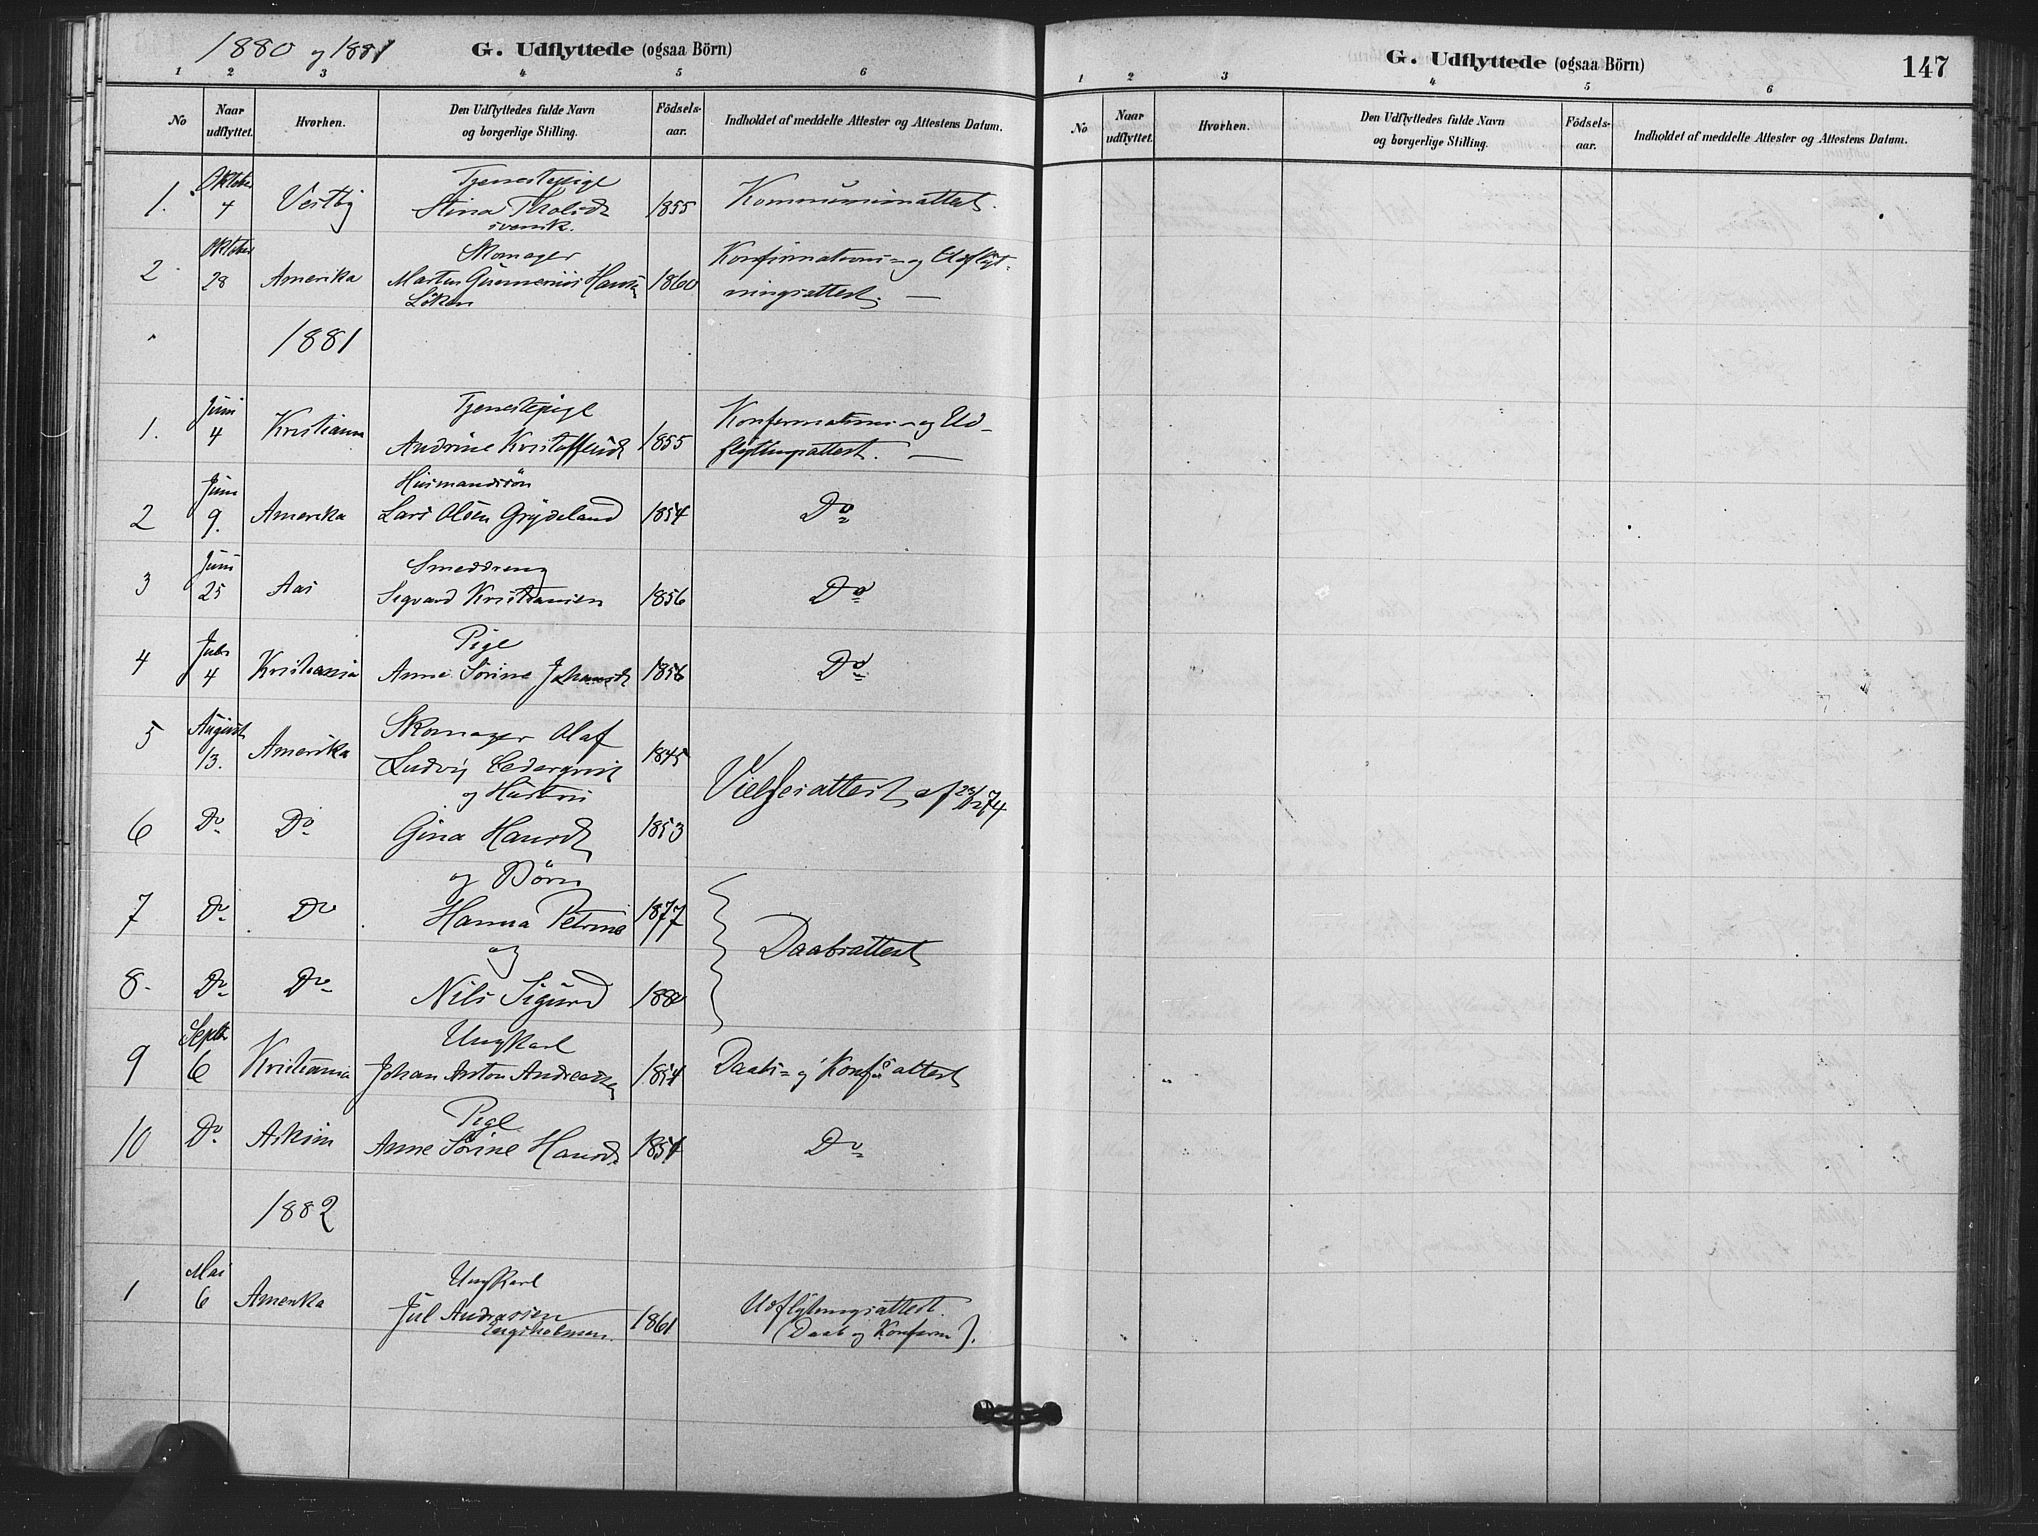 1880 og 1881
G. Udflyttede (ogsaa Börn)
1 2 3 4 5 6
No
Naar udflyttet.
Hvorhen.
Den Udflyttedes fulde Navn og borgerlige Stilling.
Födsels-aar.
Indholdet af meddelte Attester og Attestens Datum.
Oktober Tjenestepige
1. 4 Vestby Stina 1855 Kommunionattest.
svensk.
Oktober Skomager Konfirmations- og Udflyt-
2 28 Amerika Martin Gunnerius Hansen 1860 ningsattest. —
Löken
1881
Juni Tjenestepige Konfirmations- og Ud-
1. 4 Kristiania Andrine Kristoffersdt 1855 flytningsattest. —
Juni Husmandssön
2 9. Amerika Lars Olsen Grydeland 1854 Do
Juni Smeddreng
3 25 Aas Sigvard Kristiansen 1856 Do
Juli Pige
4 4 Kristiania Anne Sörine Johansdt 1856 Do
5 August Skomager Olaf
13. Amerika Ludvig Cederqvist 1845
og Hustru Vielsesattest af 74
6 Do Do Gina Hansdt 1853
og Börn
7 Do Do Hanna Petrine 1877
og Daabsattest
8. Do Do Nils Sigurd 1880
Septbr Ungkarl
9 6 Kristiania Johan Anton Andreassen 1854 Daabs- og Konfs attest
Pige
10 Do Askim Anne Sörine Hansdt 1854 Do
1882
Mai Ungkarl
1 6 Amerika Jul Andreasen 1861 Udflytningsattest.
Engsholmen. (Daab og Konfirm).
G. Udflyttede (ogsaa Börn)
147
1 2 3 4 5 6
No
Naar udflyttet.
Hvorhen.
Den Udflyttedes fulde Navn og borgerlige Stilling.
Födsels-aar.
Indholdet af meddelte Attester og Attestens Datum.